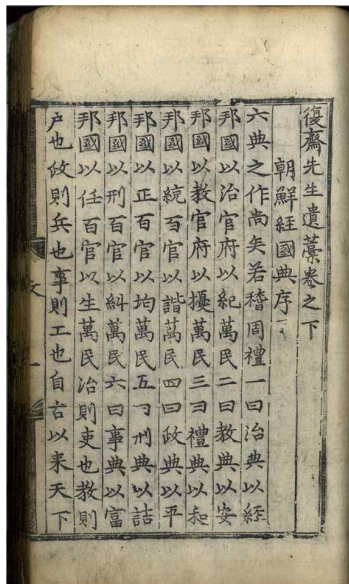 復齋先生遺藁卷之下
朝鮮經國典序
六典之作尚矣若稽周禮一曰治典以經
邦國以治官府以紀萬民二曰教典以安
邦國以教官府以擾萬民三曰禮典以和
邦國以統百官以諧萬民四曰政典以平
邦國以正百官以均萬民五曰刑典以詰
邦國以刑百官以糾萬民六曰事典以富
邦國以任百官以生萬民治則吏也教則
户也政則兵也事則工也自古以来天下
文
一